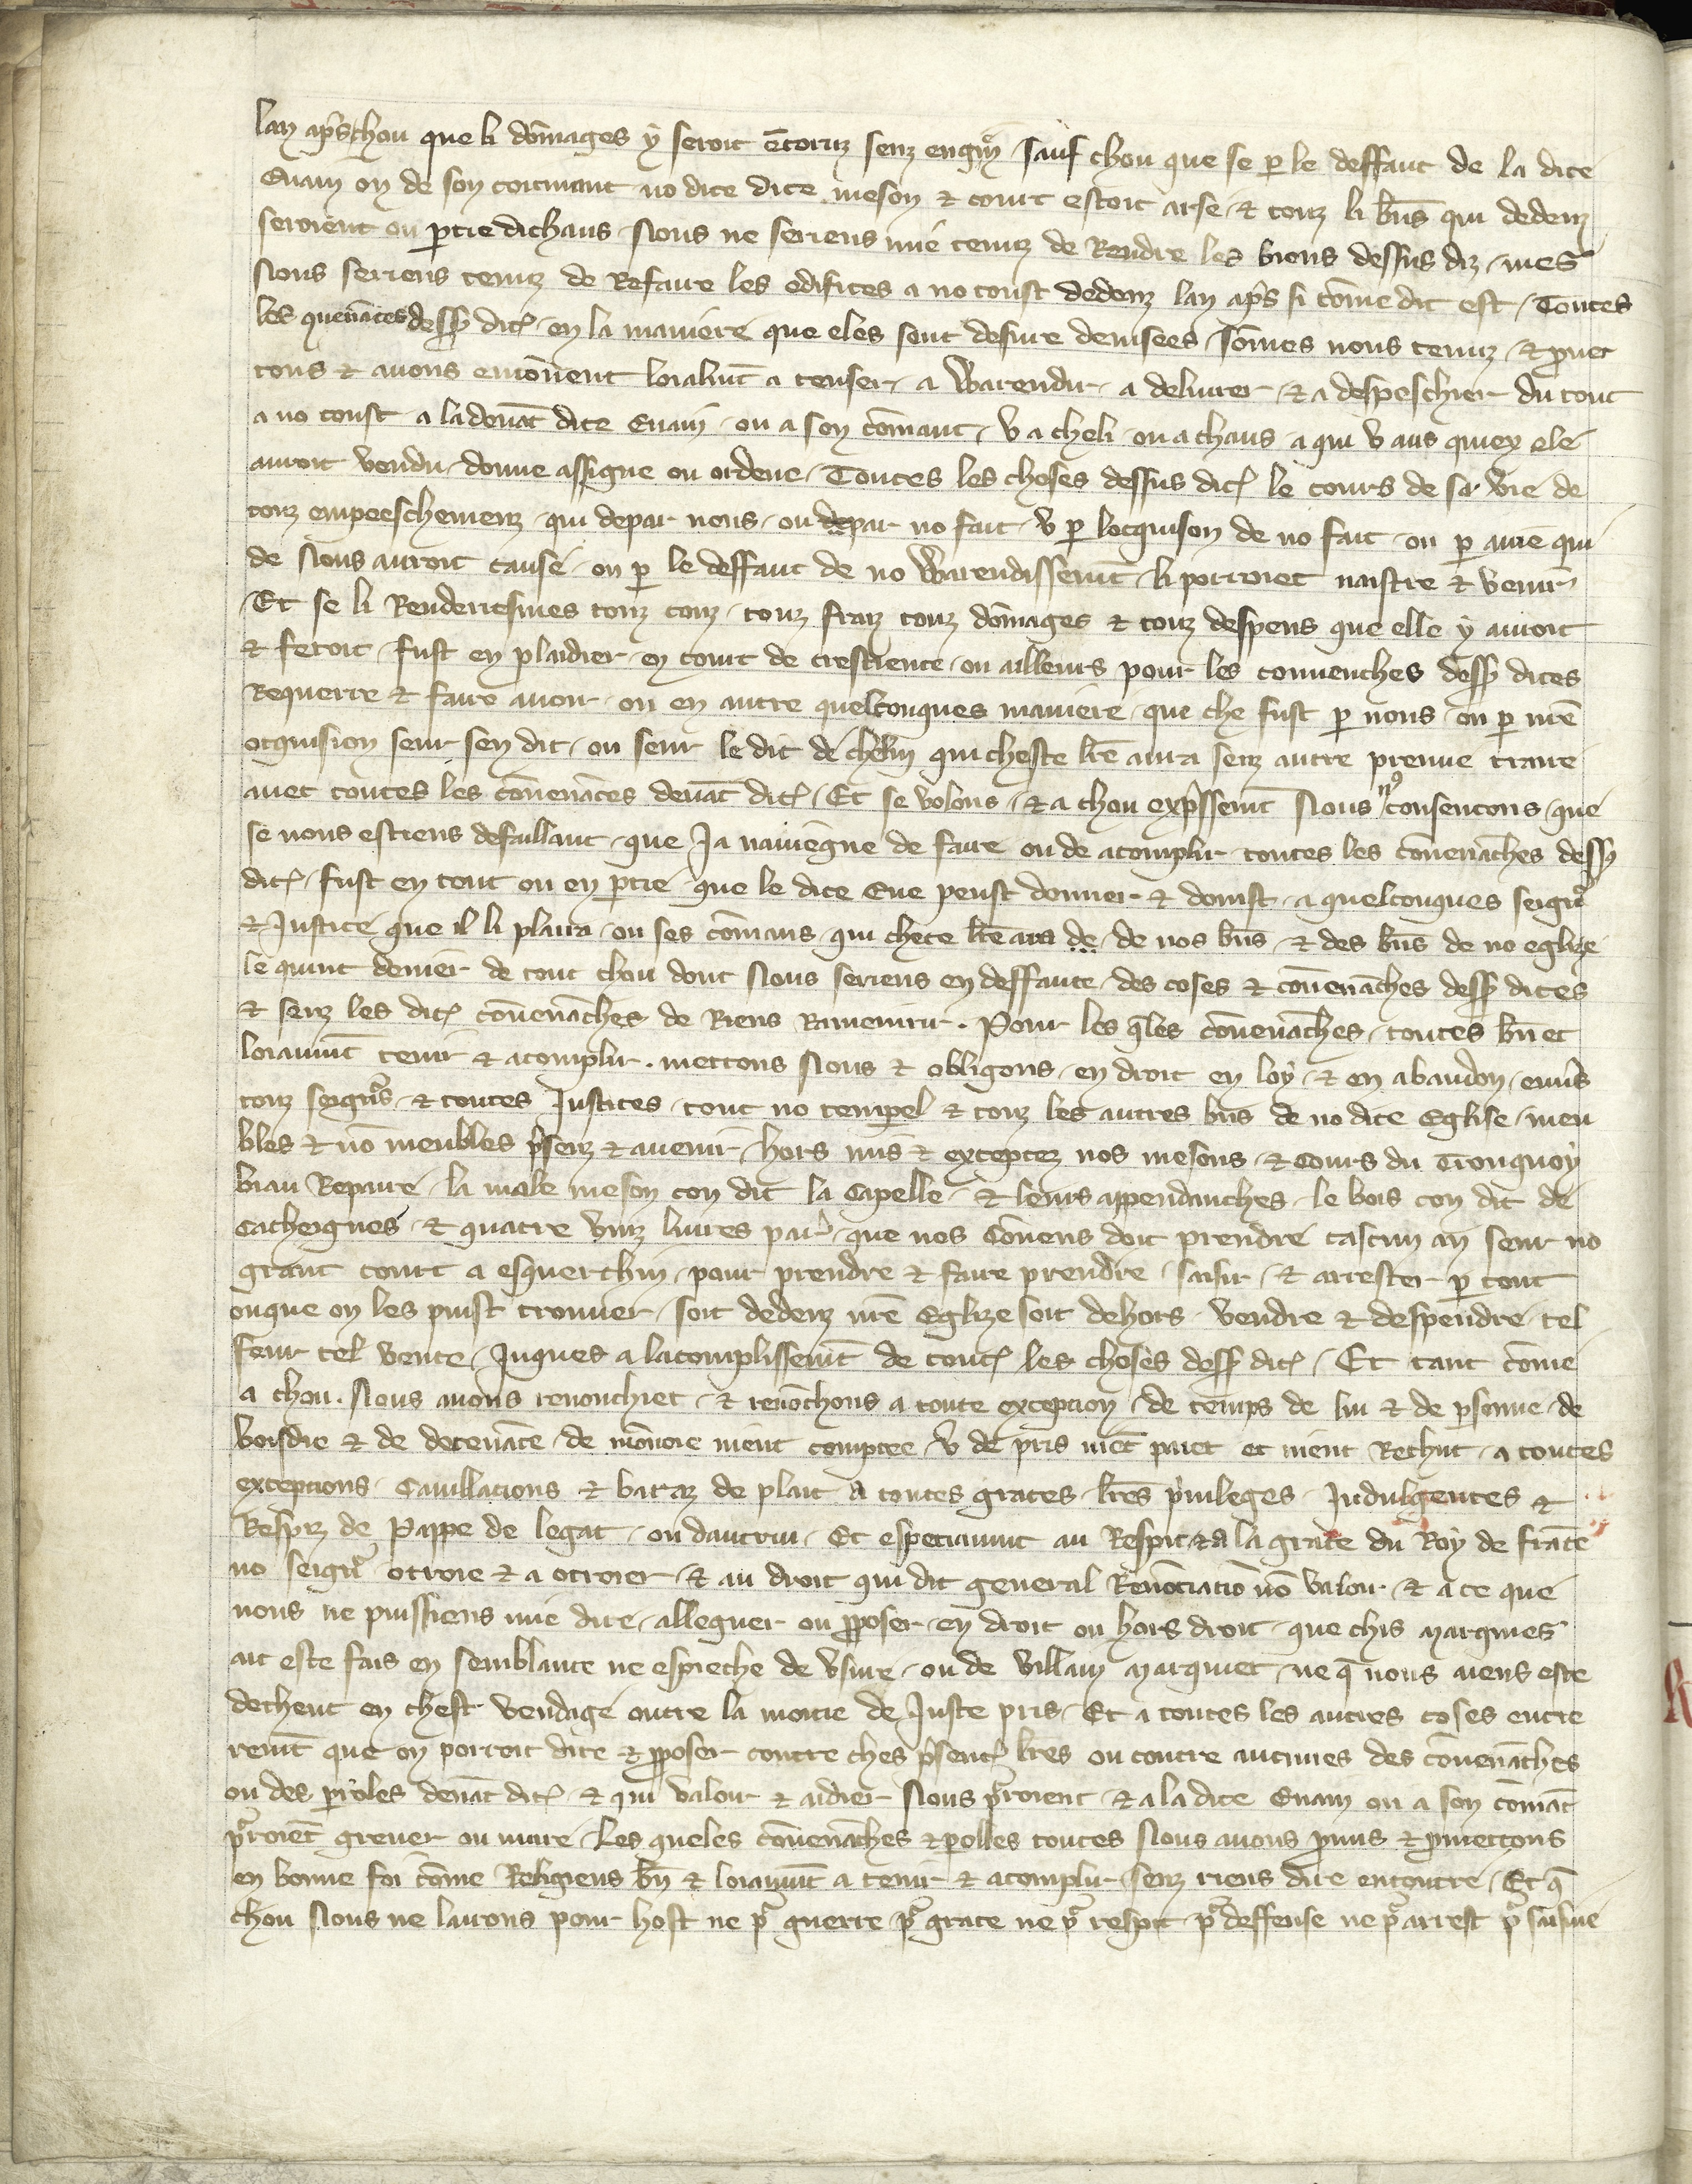 lan ap̃s chou que li dõmages y seroit ẽcoruz senz engiẽ / sauf chou que se p le deffaut de la dite
Euain ou de son coumant no dite dite meson & court estoit arse / & touz li bñs qui dedenz
seroient ou ptie dichaus / Nous ne seriens mie tenuz de Rendre les biens dessus diz / mes
Nous seriens tenuz de Refaire les edifices a no coust dedenz lan ap̃s si cõme dit est / Toutes
les quenãces dess dit / en la maniere que eles sont desure deuisees / sõmes nous tenuz / & pmet
tons & auons enconuent loialmt̃ a tenser / a Warendir / a deliurer / & a despeschier du tout
a no coust a la deuãt dite Euain / ou a son cõmant / v a cheli / ou a chaus a qui v aus quiex ele
auroit vendu / donne assigne ou ordene / Toutes les choses dessus dit le cours de sa vie de
touz empeeschemenz / qui de par nous / ou de par no fait / v p locquison de no fait / ou p autre qui
de Nous auroit cause / ou p le deffaut de no Warendissemt̃ / li porroiet naistre & venir
Et se li Renderiesmes touz couz / touz fraiz touz dõmages & touz despens que elle y auroit
& feroit / fust en plaidier / en court de crestiente / ou ailleurs pour les conuenches dess dites
Requerre & faire auoir / ou en autre quelconques maniere / que che fust p nous / ou p nr̃e
ocquision seur sen dit / ou seur le dit de chelui qui cheste lr̃e aura senz autre preuue traire
auec toutes les cõuenãces deuãt dit / Et se volons / & a chou exp̃ssemt̃ Nous consentons / que
se nous estiens defaillant / que Ja nauiegne de faire ou de acomplir toutes les cõuenãches dess
dit / fust en tout ou en ptie / que le dite Eue peust donner & donist / a quelconques seignr̃
& Justice que il li plaira / ou ses cõmans / qui chete lr̃e ara de / de nos bñs / & des bñs de no eglize
le quint denier de tout chou dont Nous seriens en deffaute / des coses & cõuenãches dess dites
& senz les dit cõuenãches de Riens Ramenrir . Pour les q̃les cõuenãches / toutes bñ et
loiaumt̃ tenir & acomplir . mettons Nous & obligons / en droit en loy / & en abandon / enuers
touz seignrs̃ / & toutes Justices / tout no tempel & touz les autres bñs de no dite Eglise / meu
bles & nõ meubles p̃senz & auenir / hors mis & exceptez nos mesons / & Cours du Tronquoy
biau Repaire / la male meson con dit la Capelle / & leurs appendanches / le bois con dit de
Cacheignes / & quatre vinz liures par̃ / que nos Cõuens doit prendre cascun an seur no
grant court a esquerchin / pour prendre & faire prendre / saisir / & arrester p tout
ouque on les puist trouuer / soit dedenz nr̃e Eglize soit dehors / vendre & despendre / tel
feur tel vente / Juques a lacomplissemt̃ de tout les choses dess dit / Et tant cõme
a chou . Nous auons renonchiet / & renõchons a toute exception / de temps de liu & de psonne / de
boisdie & de deceuãce / de mõnoie nient comptee / v de pris niẽt paiet et nient Rechut / a toutes
exceptions / Cauillations & baraz de plait a toutes graces / lr̃es p̃uileges / Indulgences &
Respiz de Pappe de legat / ou dautrui / Et especiaumt au Respit & a la grace du Roy de frãce
no seignr̃ otroie & a otroier / & au droit qui dit general Renõciatiõ nõ valoir / & a ce que
nous ne puissiens mie dire / alleguer ou pposer / en droit ou hors droit / que chis marquies
ait este fais en semblance ne espreche de vsure / ou de villain marquiet / ne q̃ nous aiens este
decheut en chest vendage outre la moitie de Juste pris / Et a toutes les autres coses entre
remt̃ que on porroit dire & pposer contre ches p̃sent lr̃es ou contre aucunes des cõuenãches
ou des paroles deuãt dit / & qui valoir & aidier Nous p̃roient / & a la dite Euain ou a son cõmãt
p̃roiẽt greuer ou nuire / Les queles cõuenãches & polles toutes Nous auons pmis & pmettons
en bonne foi cõme Religieus bñ & loiaumt̃ a tenir & acomplir / senz riens dire encontre / Et q̃
chou Nous ne lairons pour host ne p̃ guerre / p̃ grace ne p̃ respit / p̃ deffense ne p̃ arrest p̃ saisine